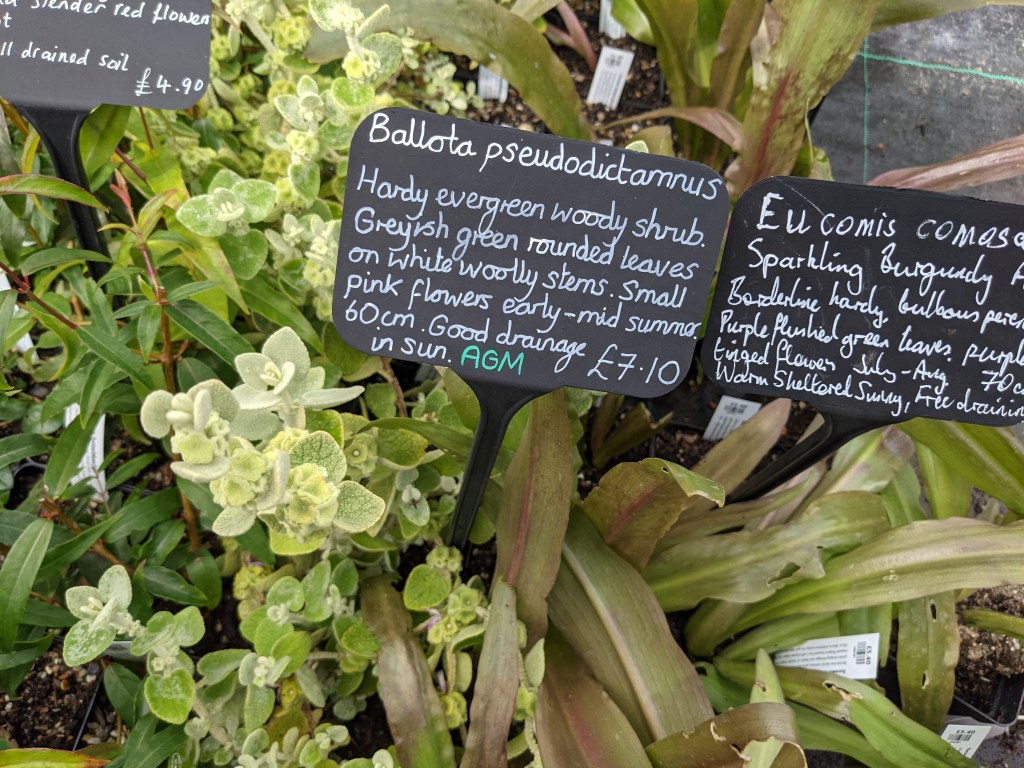 slender red flower
ll drained soil
£4.90
Ballota pseudodictamnus
Hardy evergreen woody shrub.
Greyish green rounded leaves
on white woolly stems. Small
pink flowers early-mid summer
60cm. Good drainage
in sun. AGM £7.10
Eucomis comosa
Sparkling Burgundy
Borderline hardy, bulbous peren
Purple flushed green leaves. purple
tinged flowers July-Aug 70cm
Warm Sheltered Sunny, Free draining
£5.40
£5.40